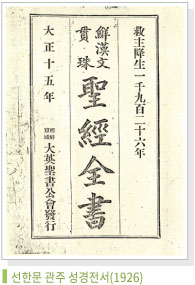 救主降生一千九百二十六年
鮮漢文
貫珠
聖經全書
大正十五年
大英聖書公會發行
선한문 관주 성경전서(1926)